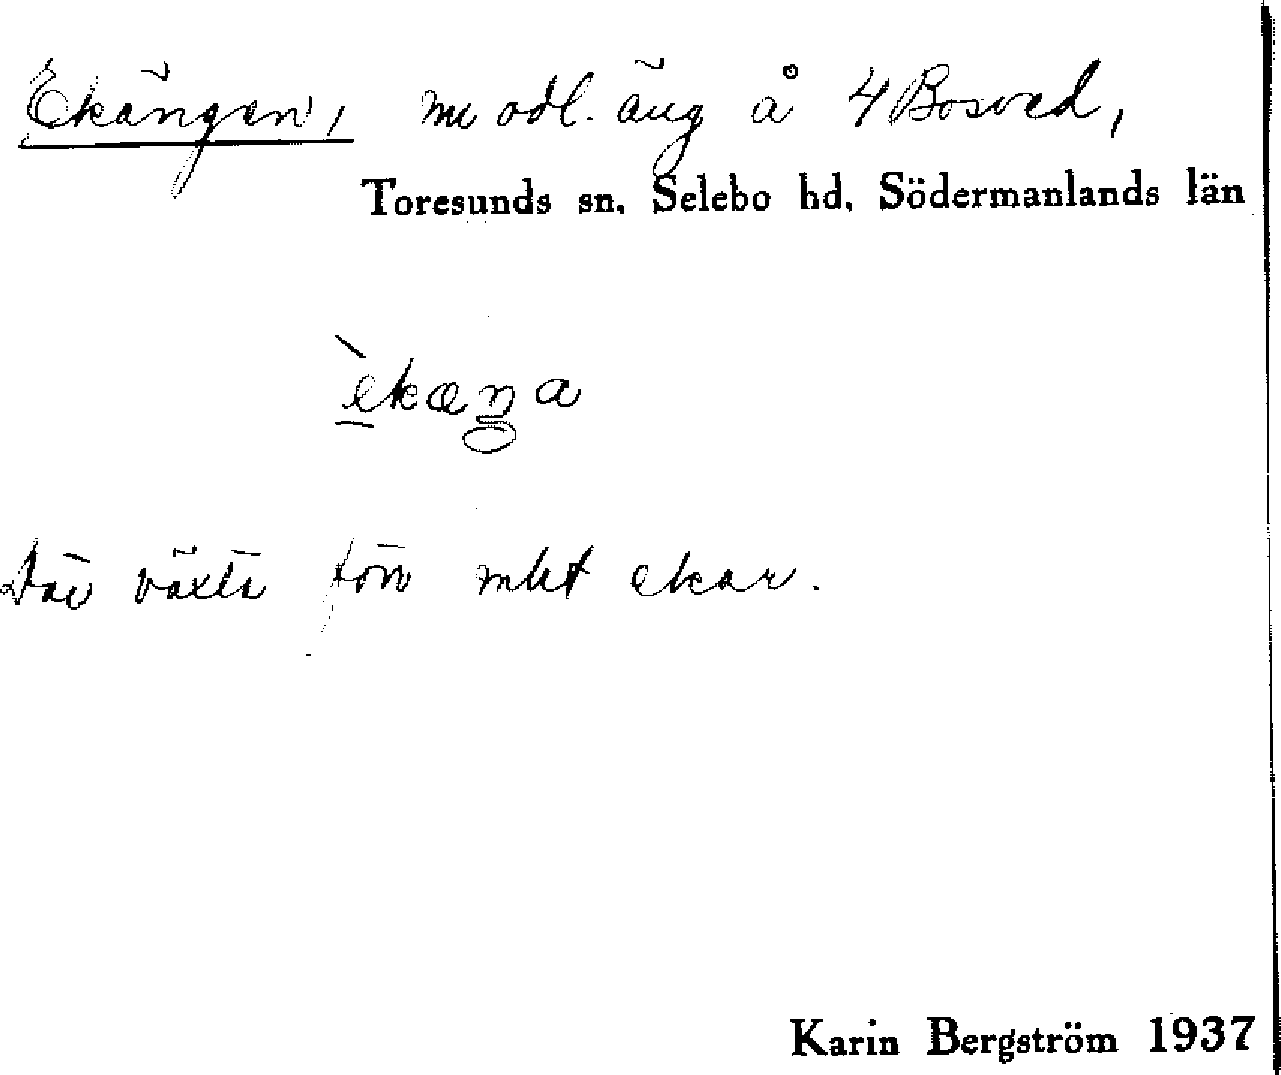 Ekängen, nu odl. äng å 4 Bosved,
Toresunds sn. Selebo hd. Södermanlands län
èkæŋa
Där växte förr mkt ekar.
Karin Bergström 1937